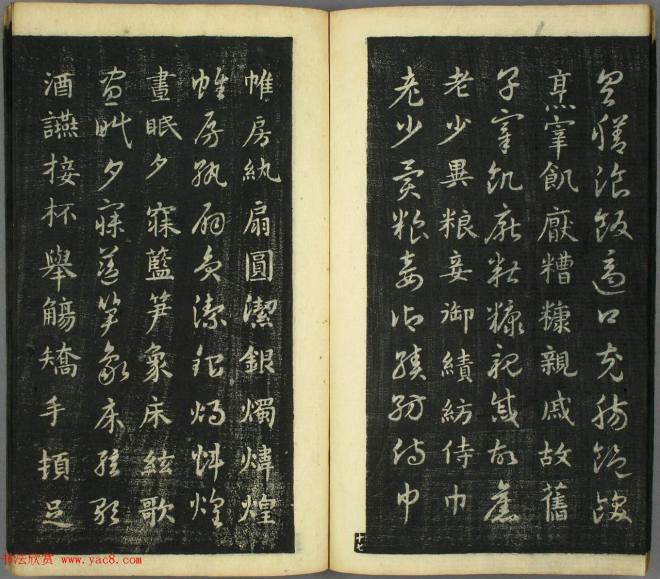 具膳飡飯適口充腸飽飫
烹宰飢厭糟糠親戚故舊
烹宰飢厭糟糠親戚故舊
老少異粮妾御績紡侍巾
老少異粮妾御績紡侍巾
十七
帷房紈扇圓潔銀燭煒煌
帷房紈扇圓潔銀燭煒煌
晝眠夕寐藍笋象床絃歌
晝眠夕寐藍笋象床絃歌
酒讌接杯舉觴矯手頓足
书法欣赏 www.yac8.com